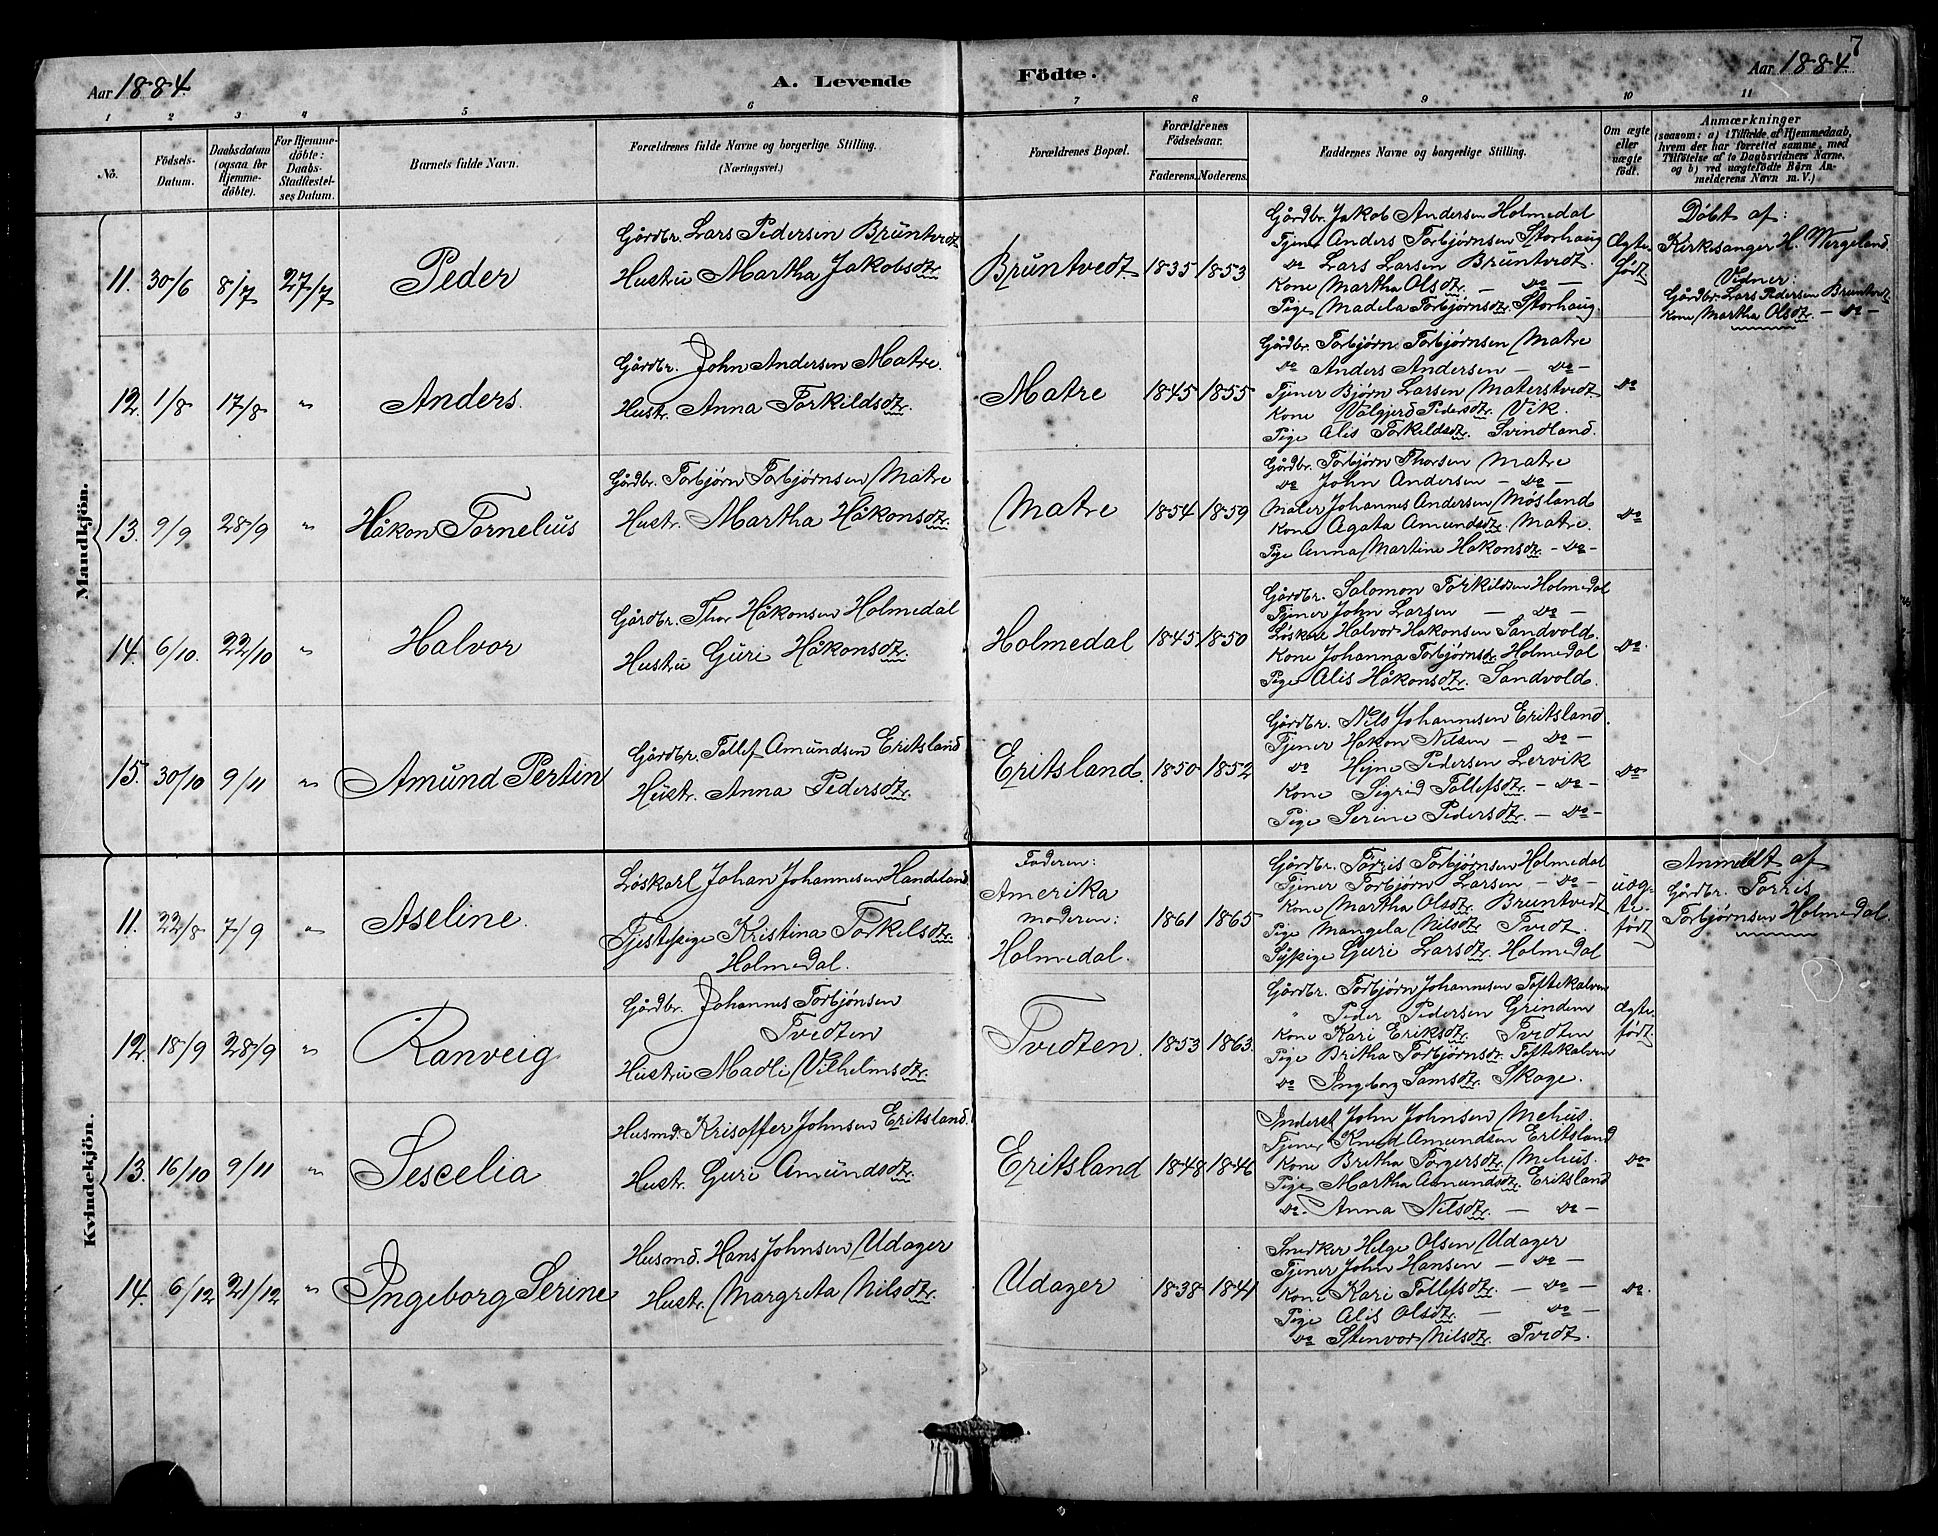 7
Aar 1884. A. Levende Födte. Aar 1884.
1 2 3 4 5 6 7 8 9 10 11
No.
Födsels-
Datum.
Daabsdatum
(ogsaa for
Hjemme-
döbte).
For Hjemme-
döbte:
Daabs-
Stadfæstel-
ses Datum.
Barnets fulde Navn.
Forældrenes fulde Navne og borgerlige Stilling.
(Næringsvei.)
Forældrenes Bopæl.
Forældrenes
Födselsaar.
Faderens. Moderens.
Faddernes Navne og borgerlige Stilling.
Om ægte
eller
uægte
födt.
Anmærkninger
(saasom: a) i Tilfælde af Hjemmedaab,
hvem der har forrettet samme, med
Tilföielse af to Daabsvidners Navne,
og b) ved uægtefödte Börn An-
melderens Navn m. V.)
Mandkjön.
11. 30/6 8/7 27/7 Peder
Gårdbr. Lars Pedersen Bruntvedt
Hustru Martha Jakobsdtr.
Bruntvedt 1835 1853
Gårdbr. Jakob Andersen Holmedal
Tjener Anders Torbjørnsen Storhaug
do Lars Larsen Bruntvedt.
Kone Martha Olsdtr. — do —
Pige Madela Torbjørnsdtr. Storhaug.
Ægte
født
Døbt af:
Kirkesanger H. Wergeland.
Vidner:
Gårdbr. Lars Pedersen Bruntvedt
Kone Martha Olsdtr. — do —
12. 1/8 17/8 " Anders.
Gårdbr. John Andersen Matre.
Hustr. Anna Torkildsdtr.
Matre 1845 1855
Gårdbr. Torbjørn Torbjørnsen Matre
do Anders Andersen — do —
Tjener Bjørn Larsen Materstvedt
Kone Valgjerd Pedersdtr. Vik.
Pige Alis Torkildsdtr. Svindland.
do
13. 9/9 28/9 " Håkon Tornelius
Gårdbr. Torbjørn Torbjørnsen Matre
Hustr. Martha Håkonsdtr.
Matre 1854 1859
Gårdbr. Torbjørn Thorsen Matre
do John Andersen — do —
Maler Johannes Andersen Møsland
Kone Agata Amundsdtr. Matre.
Pige Anna Martine Hakonsdtr. — do —
do
14. 6/10. 22/10 " Halvor
Gårdbr. Thor Håkonsen Holmedal
Hustru Guri Håkonsdtr.
Holmedal 1845 1850
Gårdbr. Salomon Torkildsen Holmedal
Tjener John Larsen — do —
Halvor Hakonsen Sandvold.
Kone Johanna Torbjørnsdtr. Holmedal
Pige Alis Håkonsdtr. Sandvold.
do.
15. 30/10 9/11 " Amund Pertin
Gårdbr. Tollef Amundsen Eritsland
Hustr. Anna Pedersdtr.
Eritsland. 1850 1852
Gårdbr. Nils Johannesen Eritsland.
Tjener Hakon Nilsen — do —
do Hejne Pedersen Lervik
Kone Sigrid Tollefsdtr. — do —
Pige Serine Pedersdtr. — do —
do
Kvindekjön.
11. 22/8 7/9 " Aseline.
Løskarl Johan Johannesen Handeland
Tjestepige Kristina Torkelsdtr.
Holmedal.
Faderen:
Amerika
Moderen:
Holmedal.
1861 1865
Gårdbr. Torris Torbjørnsen Holmedal
Tjener Torbjørn Larsen — do —
Kone Martha Olsdtr. Bruntvedt
Pige Mangela Nilsdtr. Tvedt.
Sypige Guri Larsdtr. Holmedal
uæg-
te
født
Anmeldt af
Gårdbr. Torris
Torbjørnsen Holmedal.
12. 18/9 28/9 " Ranveig
Gårdbr. Johannes Torbjønsen
Tvedten
Hustru Madli Vilhelmsdtr.
Tvedten. 1853 1863.
Gårdbr. Torbjørn Johannesen Toftekalven
" Peder Pedersen Grindem
Kone Kari Eriksdtr. Tvedten
Pige Britha Torbjørnsdtr. Toftekalven
do Ingeborg Samsdtr. Skage.
Ægte
født
13. 16/10 9/11 " Sescelia
Husmd. Krisoffer Johnsen Eritsland.
Hustr. Guri Amundsdtr.
Eritsland 1848 1846
Inderst John Johnsen Mehus.
Tjener Knud Amundsen Eritsland
Kone Britha Torgersdtr. Mehus.
Pige Martha Amundsdtr. Eritsland
do. Anna Nilsdtr. — do —
do
14. 6/12 21/12 " Ingeborg Serine
Husmd. Hans Johnsen Udager
Hustr. Margreta Nilsdtr.
Udager 1838 1841
Snedker Helge Olsen Udager
Tjener John Hansen — do —
Kone Kari Tollefsdtr. — do —
Pige Alis Olsdtr. — do —
do Stenvor Nilsdtr. Tvedt.
do.